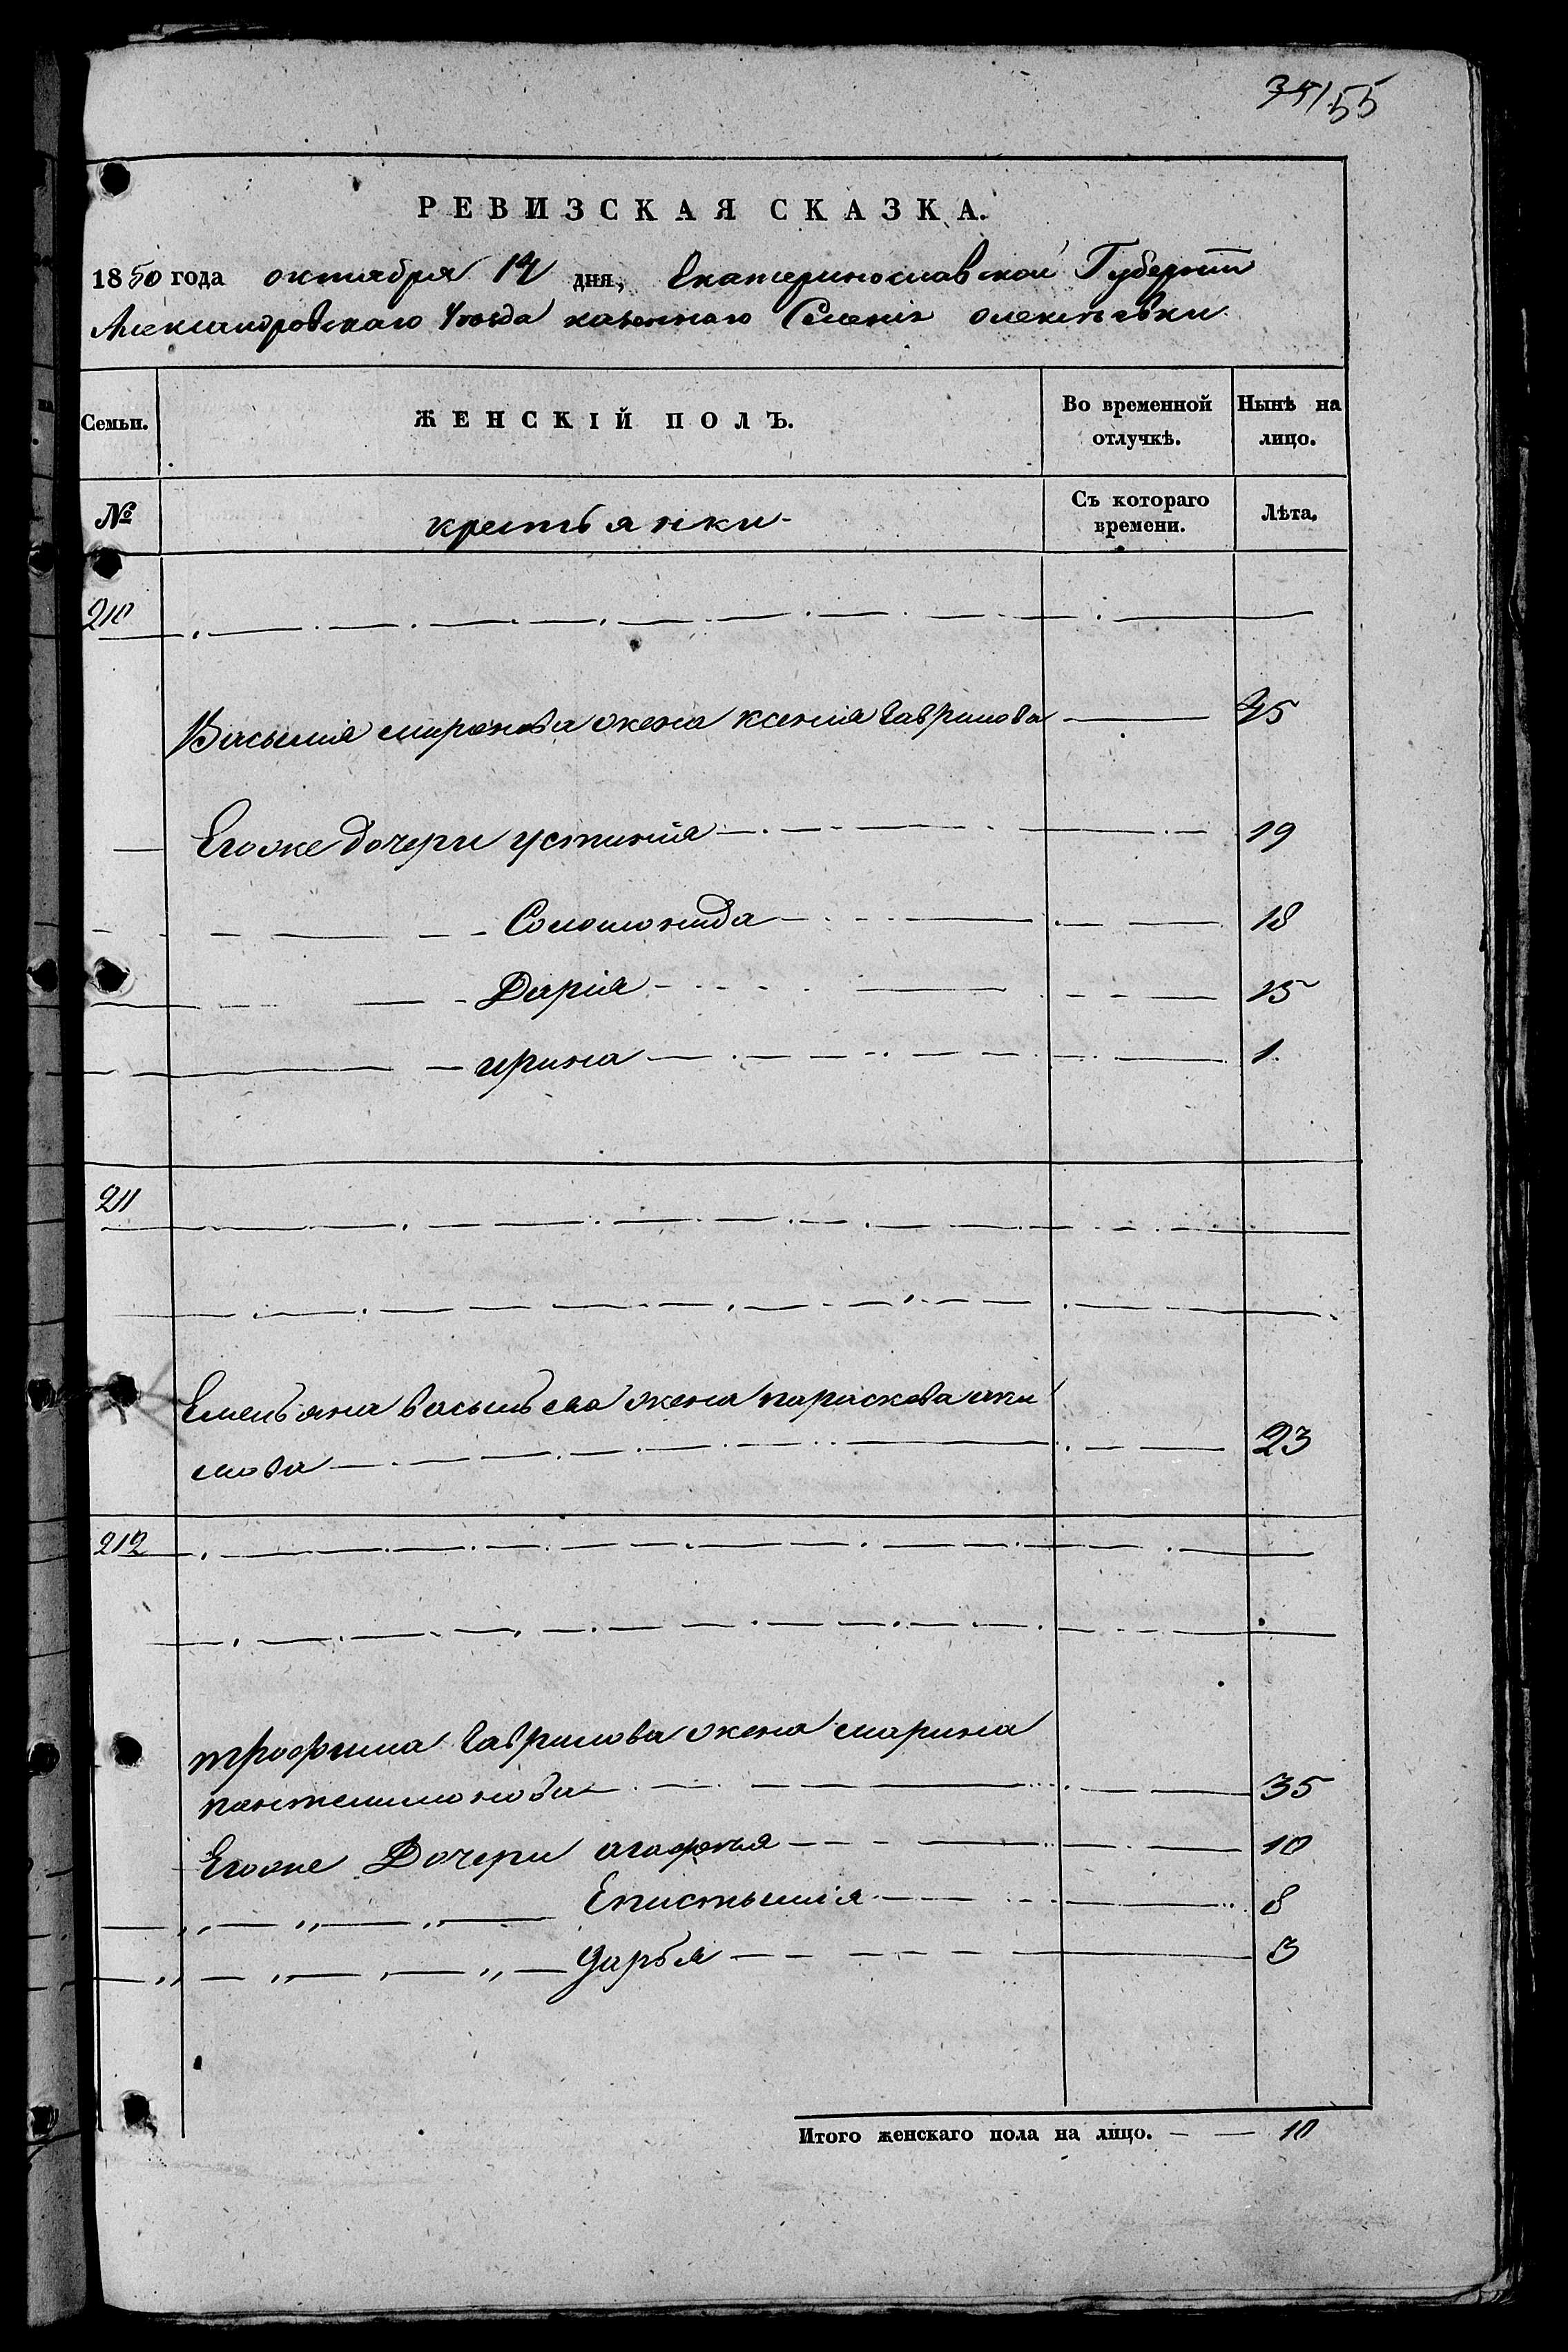 55
РЕВИЗСКАЯ СКАЗКА.
1850 года октября 14 дня, Екатеринославской Губернии
Александровскаго Уезда казеннаго Селенія олексеевки
Семьи. ЖЕНСКІЙ ПОЛЪ. Во временной отлучкѣ. Нынѣ на лицо.
№ крестьянки Съ котораго времени. Лѣта.
210
Васылія миронова жена ксенія Гаврилова 45
Егоже дочери устинія 19
Соломонида 18
Дарія 15
ирина 1
211
Емельяна васыльева жена параскова аки
мова 23
212
трофима Гаврилова жена марина
пантелимонова 35
Егоже Дочери агафья 10
Епистымія 8
дарья 3
Итого женскаго пола на лицо. 10